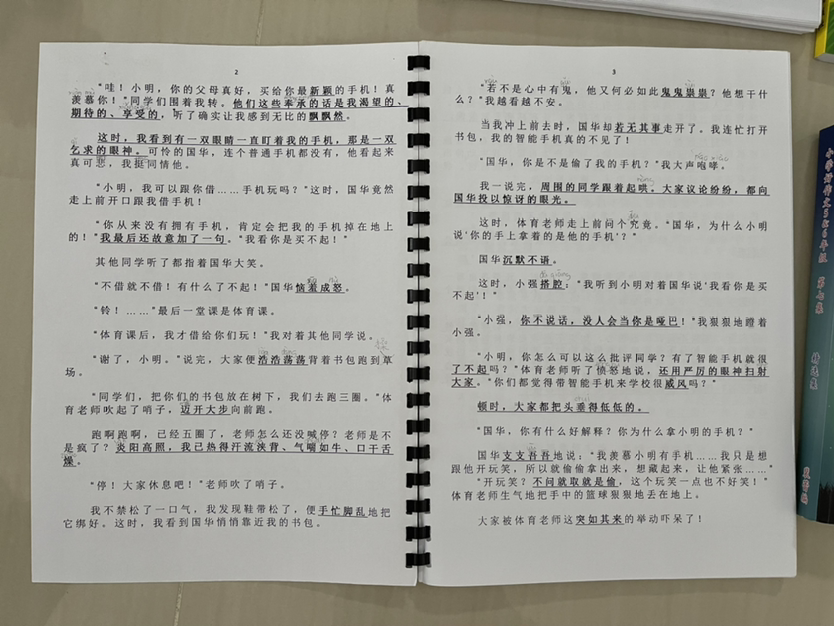 2
"哇！小明，你的父母真好，买给你最新颖的手机！真
羡慕你！"同学们围着我转。他们这些奉承的话是我渴望的、
期待的、享受的，听了确实让我感到无比的飘飘然。
这时，我看到有一双眼睛一直盯着我的手机，那是一双
乞求的眼神。可怜的国华，连个普通手机都没有，他看起来
真可悲，我挺同情他。
"小明，我可以跟你借……手机玩吗？"这时，国华竟然
走上前开口跟我借手机！
"你从来没有拥有手机，肯定会把我的手机掉在地上
的！"我最后还故意加了一句。"我看你是买不起！"
其他同学听了都指着国华大笑。
"不借就不借！有什么了不起！"国华恼羞成怒。
"铃！……"最后一堂课是体育课。
"体育课后，我才借给你们玩！"我对着其他同学说。
"谢了，小明。"说完，大家便浩浩荡荡背着书包跑到草
场。
"同学们，把你们的书包放在树下，我们去跑三圈。"体
育老师吹起了哨子，迈开大步向前跑。
跑啊跑啊，已经五圈了，老师怎么还没喊停？老师是不
是疯了？炎阳高照，我已热得汗流浃背、气喘如牛、口干舌
燥。
"停！大家休息吧！"老师吹了哨子。
我不禁松了一口气，我发现鞋带松了，便手忙脚乱地把
它绑好。这时，我看到国华悄悄靠近我的书包。
3
"若不是心中有鬼，他又何必如此鬼鬼祟祟？他想干什
么？"我越看越不安。
当我冲上前去时，国华却若无其事走开了。我连忙打开
书包，我的智能手机真的不见了！
"国华，你是不是偷了我的手机？"我大声咆哮。
我一说完，周围的同学跟着起哄。大家议论纷纷，都向
国华投以惊讶的眼光。
这时，体育老师走上前问个究竟。"国华，为什么小明
说'你的手上拿着的是他的手机'？"
国华沉默不语。
这时，小强搭腔："我听到小明对着国华说'我看你是买
不起'！"
"小强，你不说话，没人会当你是哑巴！"我狠狠地瞪着
小强。
"小明，你怎么可以这么批评同学？有了智能手机就很
了不起吗？"体育老师听了愤怒地说，还用严厉的眼神扫射
大家。"你们都觉得带智能手机来学校很威风吗？"
顿时，大家都把头垂得低低的。
"国华，你有什么好解释？你为什么拿小明的手机？"
国华支支吾吾地说："我羡慕小明有手机……我只是想
跟他开玩笑，所以就偷偷拿出来，想藏起来，让他紧张……"
"开玩笑？不问就取就是偷，这个玩笑一点也不好笑！"
体育老师生气地把手中的篮球狠狠地丢在地上。
大家被体育老师这突如其来的举动吓呆了！
第七集
精选集